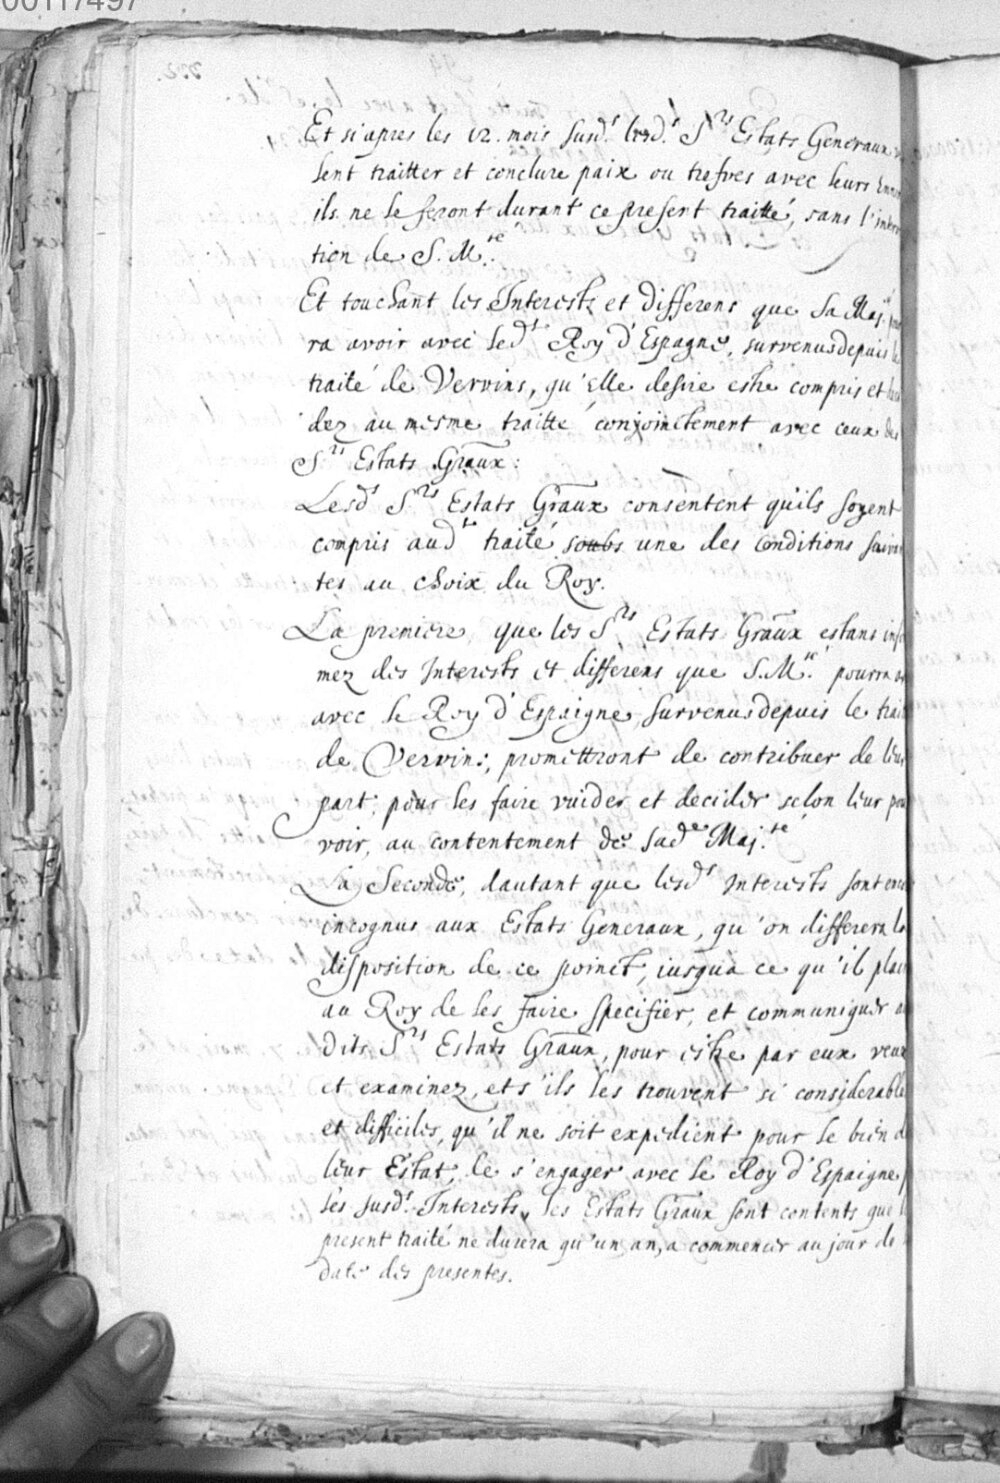 00117497
222.
Et si apres les 12. mois susd.s lesd.s S.rs Estats Generaux
lent traitter et conclure paix ou trefves avec leurs
ils ne le feront durant ce present traitté, sans l'
tion de S. M.te.
Et touchant les Interests et differens que Sa Maj.té
ra avoir avec led.t Roy d'Espagne, survenus depuis le
traité de Vervins, qu'Elle desire estre compris et
dez au mesme traitté conjoinctement avec ceux des
S.rs Estats Gñraux:
Lesd.s S.rs Estats Gñraux consentent qu'ils soyent
compris aud.t traité soubs une des conditions suivan
tes au choix du Roy.
La premiere, que les S.rs Estats Gñraux estans
mez des Interests et differens que S. M.té pourra
avec le Roy d'Espaigne, survenus depuis le trai
de Vervins, promettront de contribuer de leur
part, pour les faire vuider et decider selon leur pou
voir, au contentement de Sad.e Maj.té
La Seconde, dautant que lesd.s Interests sont
incognus aux Estats Generaux, qu'on differera la
disposition de ce poinct, iusqu'a ce qu'il plai
au Roy de les faire specifier, et communiquer
dits S.rs Estats Gñraux, pour estre par eux veux
et examinez, et s'ils les trouvent si considerable
et difficiles, qu'il ne soit expedient pour le bien d
leur Estat, de s'engager avec le Roy d'Espaigne
les susd.s Interests, les Estats Gñraux sont contents que
present traité ne durera qu'un an, a commencer au jour de
date des presentes.